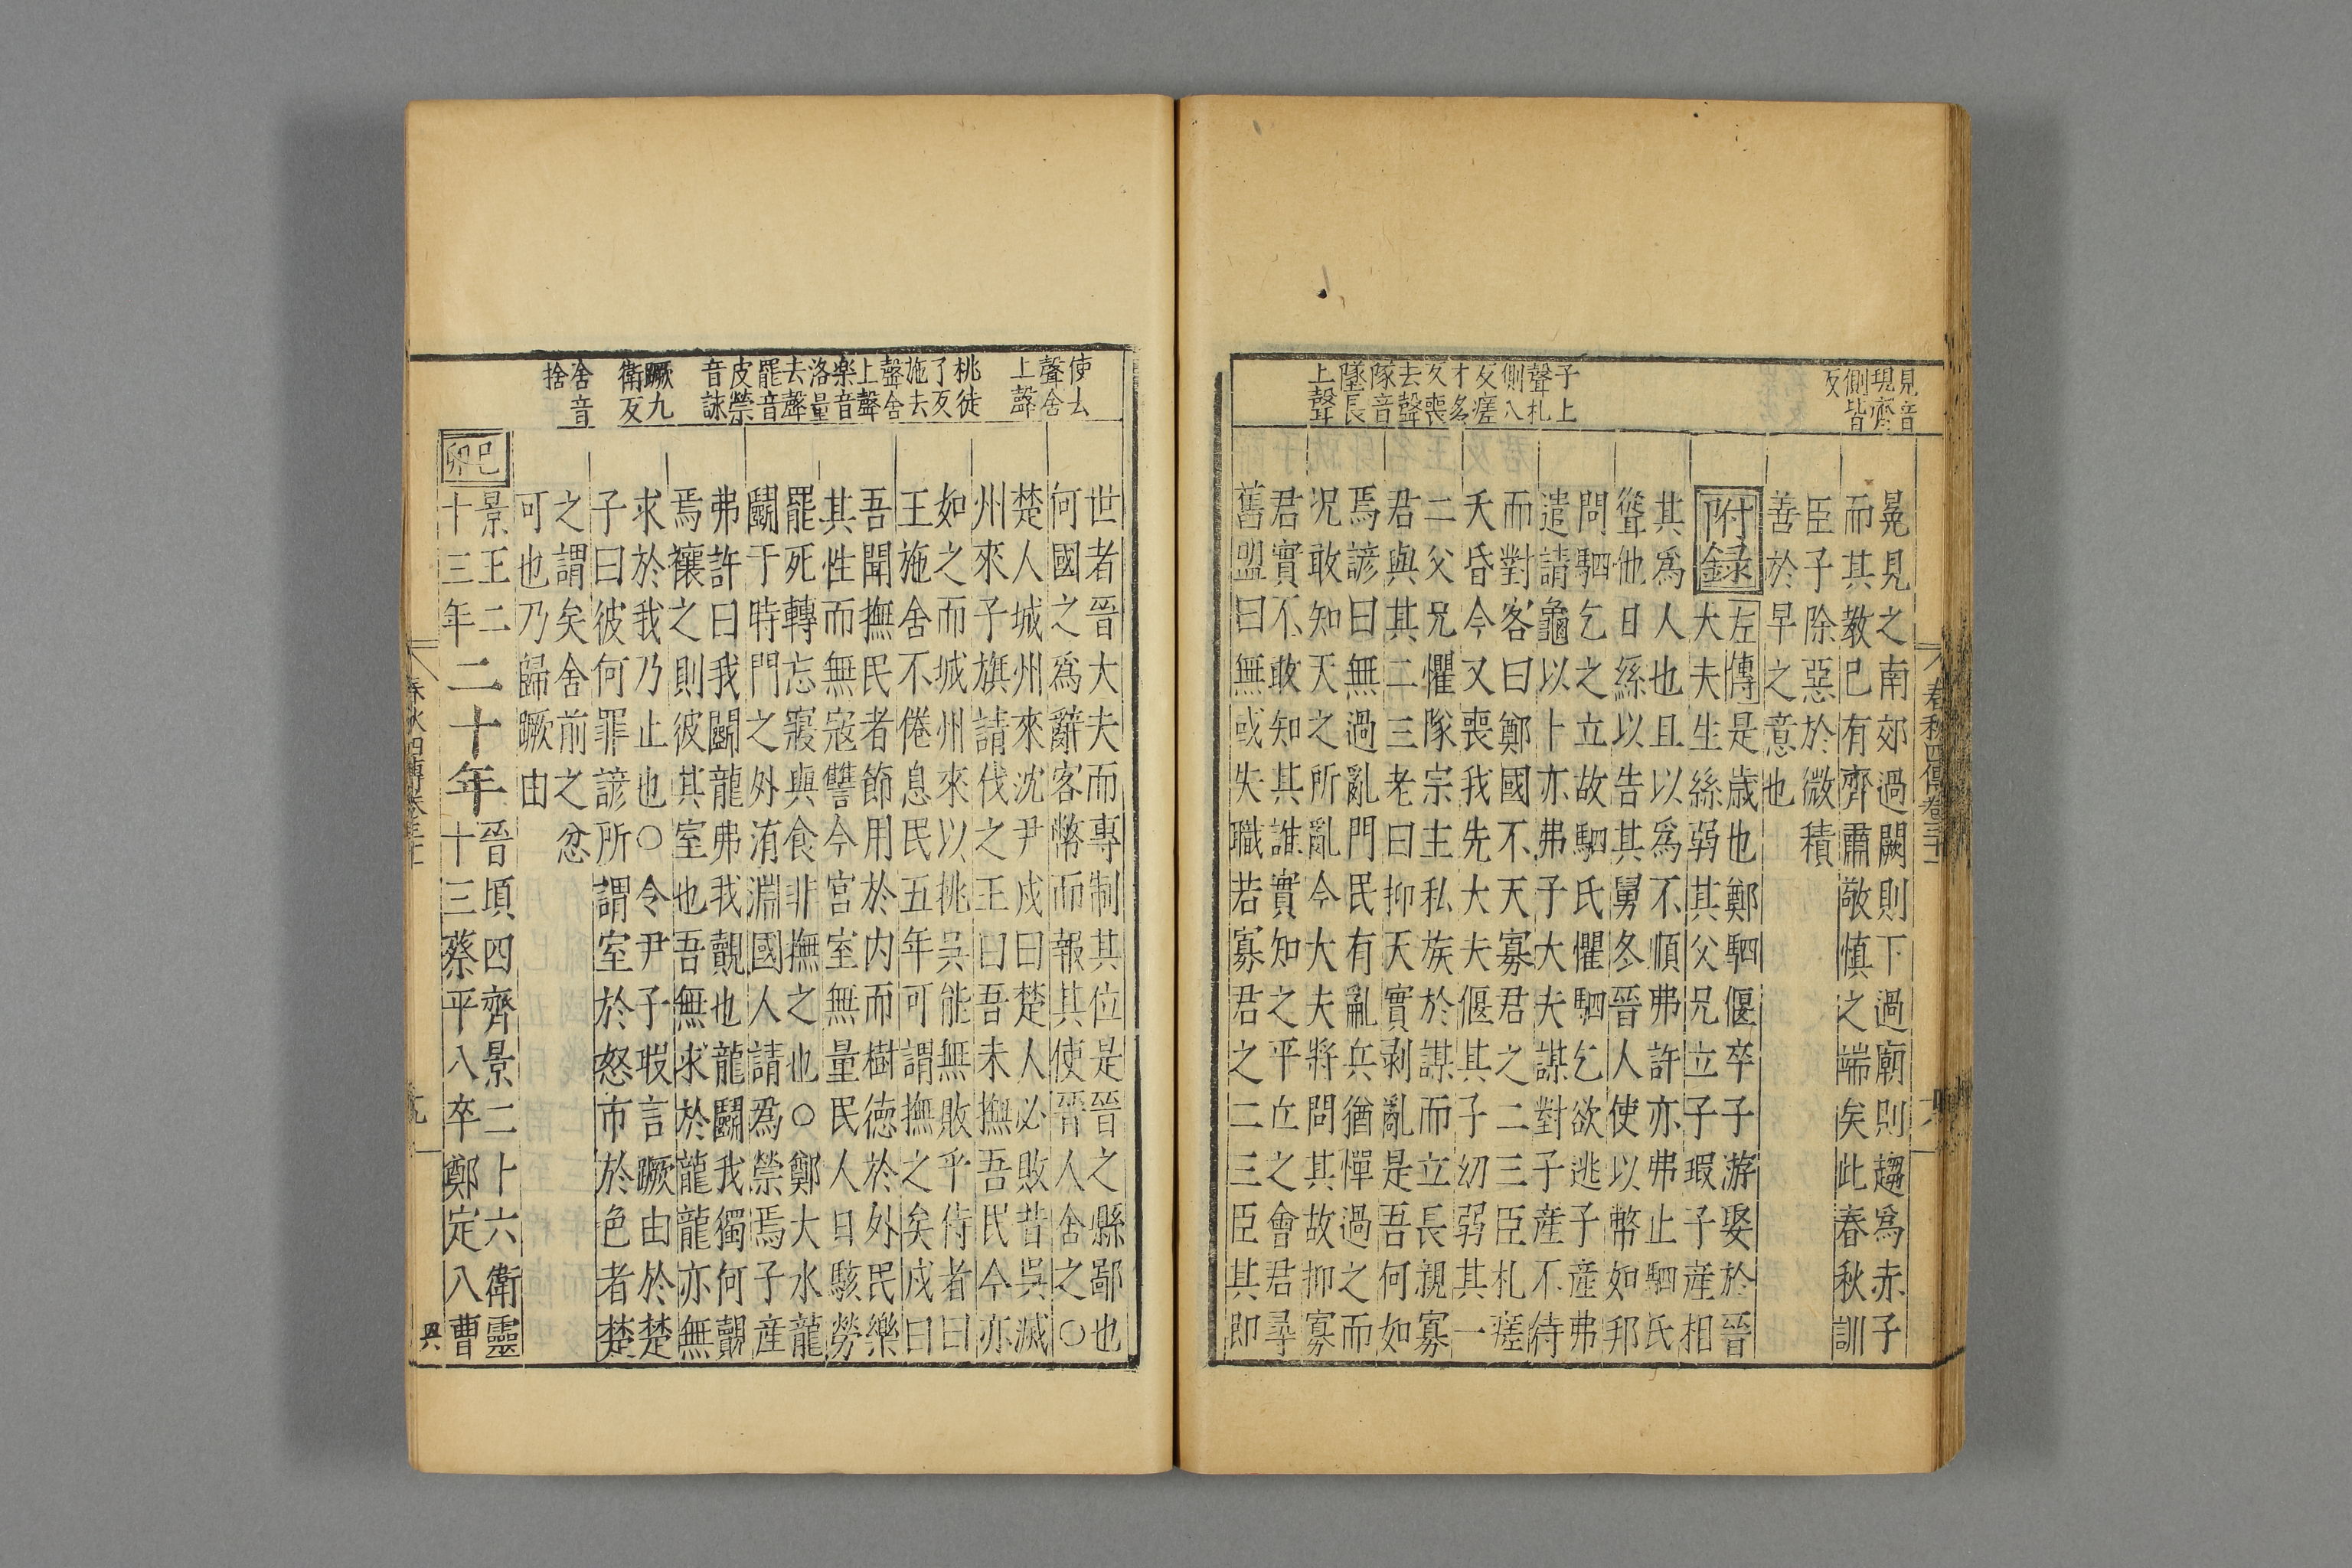 見音
現齊
側皆
反
子上
聲札
側入
反瘥
才名
反喪
去聲
隊音
墜長
上聲
春秋四傳卷三十一
晃見之南郊過闕則下過廟則趨爲赤子
而其教已有齊肅敬慎之端矣此春秋訓
臣子除惡於微積
善於早之意也
附録
左傳是歲也鄭駟偃卒子游娶於晉
大夫生絲弱其父兄立子瑕子產相
其爲人也且以爲不順弗許亦弗止駟氏
聳他日絲以告其舅冬晉人使以幣如邦
問駟乞之立故駟氏懼駟乞欲逃子產弗
遣請龜以卜亦弗子大夫謀對子產不待
而對客曰鄭國不天寡君之二三臣札瘥
夭昏今又喪我先大夫偃其子幼弱其一
二父兄懼隊宗主私族於謀而立長親寡
君與其二三老曰抑天實剥亂是吾何如
焉諺曰無過亂門民有亂兵猶憚過之而
况敢知天之所亂今大夫將問其故抑寡
君實不敢知其誰實知之平丘之會君尋
舊盟曰無或失職若寡君之二三臣其即
使去
聲舍
上聲
桃徒
了反
施去
聲舍
上聲
樂音
洛量
去聲
罷音
皮禜
音詠
蹶九
衛反
舍音
捨
世者晉大夫而專制其位是晉之縣鄙也
何國之爲辭客幣而報其使晉人舍之○
楚人城州來沈尹戍曰楚人必敗昔吳滅
州來子旗請伐之王曰吾未撫吾民今亦
如之而城州來以挑吳能無敗乎侍者曰
王施舍不倦息民五年可謂撫之矣戍曰
吾聞撫民者節用於内而樹德於外民樂
其性而無寇讐今宮室無量民人日駭勞
罷死轉忘寢與食非撫之也○鄭大水龍
鬭于時門之外洧淵國人請爲禜焉子產
弗許曰我鬭龍弗我覿也龍鬭我獨何覿
焉禳之則彼其室也吾無求於龍龍亦無
求於我乃止也○令尹子瑕言蹶由於楚
子曰彼何罪諺所謂室於怒市於色者楚
之謂矣舍前之忿
可也乃歸蹶由
己卯
景王二
十三年
二十年
晉頃四齊景二十六衛靈
十三蔡平八卒鄭定八曹
春秋四傳卷三十一